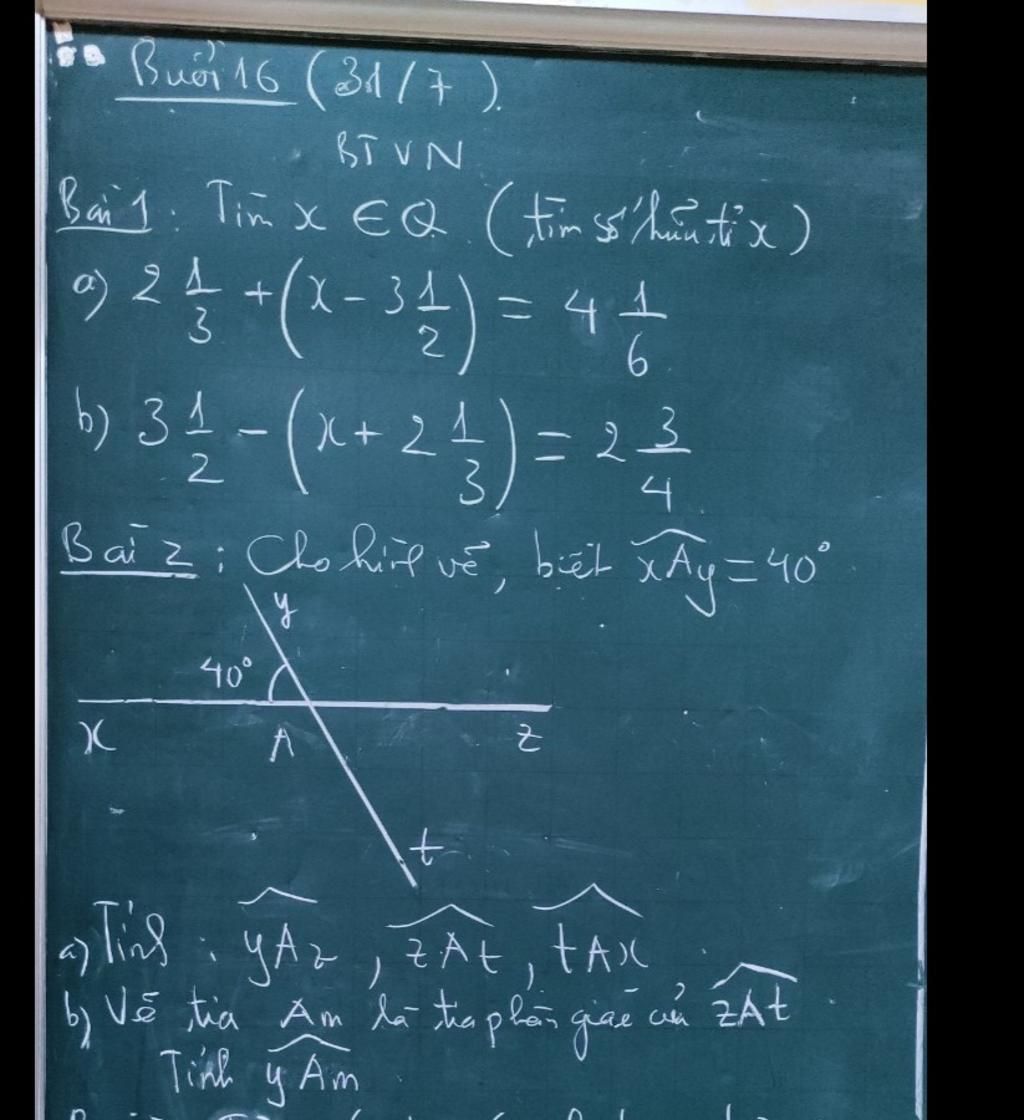 Buổi 16 (31/7).
BTVN
Bài 1: Tìm x ∈ Q. (tìm số hữu tỉ x)
a) 2 1/3 + (x - 3 1/2) = 4 1/6
b) 3 1/2 - (x + 2 1/3) = 2 3/4
Bài 2: Cho hình vẽ, biết xAy = 40°
y
40°
x A z
t
a) Tính: yAz, zAt, tAx
b) Vẽ tia Am là tia phân giác của zAt
Tính yAm